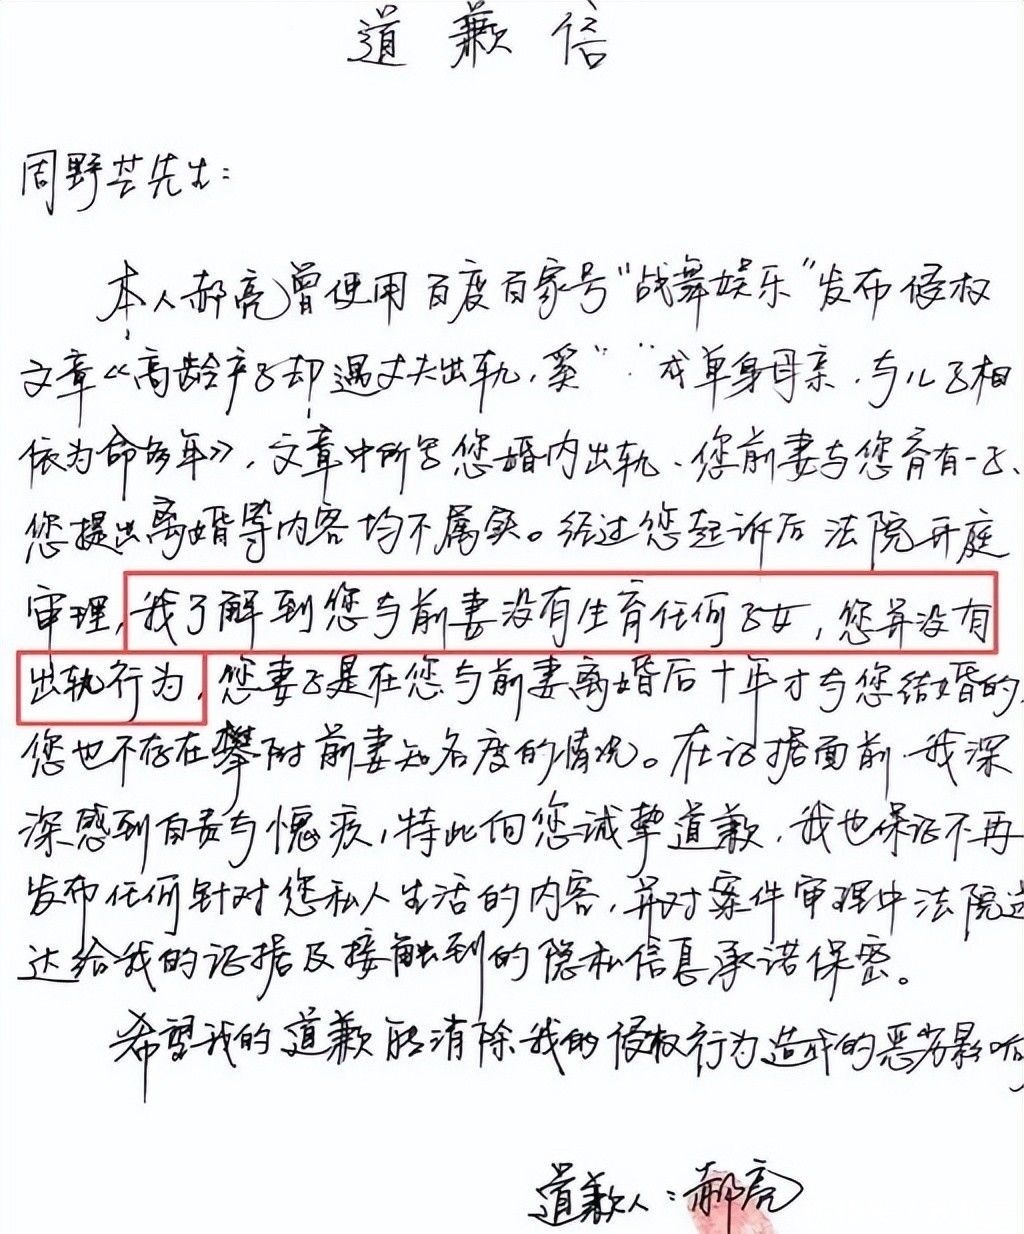 道歉信
周野芒先生：
本人郝亮曾使用百度百家号“战舞娱乐”发布侵权
文章《高龄产子却遇丈夫出轨，奚“ ”成单身母亲，与儿子相
依为命多年》，文章中所写您婚内出轨、您前妻与您育有一子、
您提出离婚等内容均不属实。经过您起诉后法院开庭
审理，我了解到您与前妻没有生育任何子女，您并没有
出轨行为，您妻子是在您与前妻离婚后十年才与您结婚的，
您也不存在攀附前妻知名度的情况。在证据面前，我深
深感到自责与愧疚，特此向您诚挚道歉，我也保证不再
发布任何针对您私人生活的内容，并对案件审理中法院送
达给我的证据及接触到的隐私信息承诺保密。
希望我的道歉能消除我的侵权行为造成的恶劣影响
道歉人：郝亮